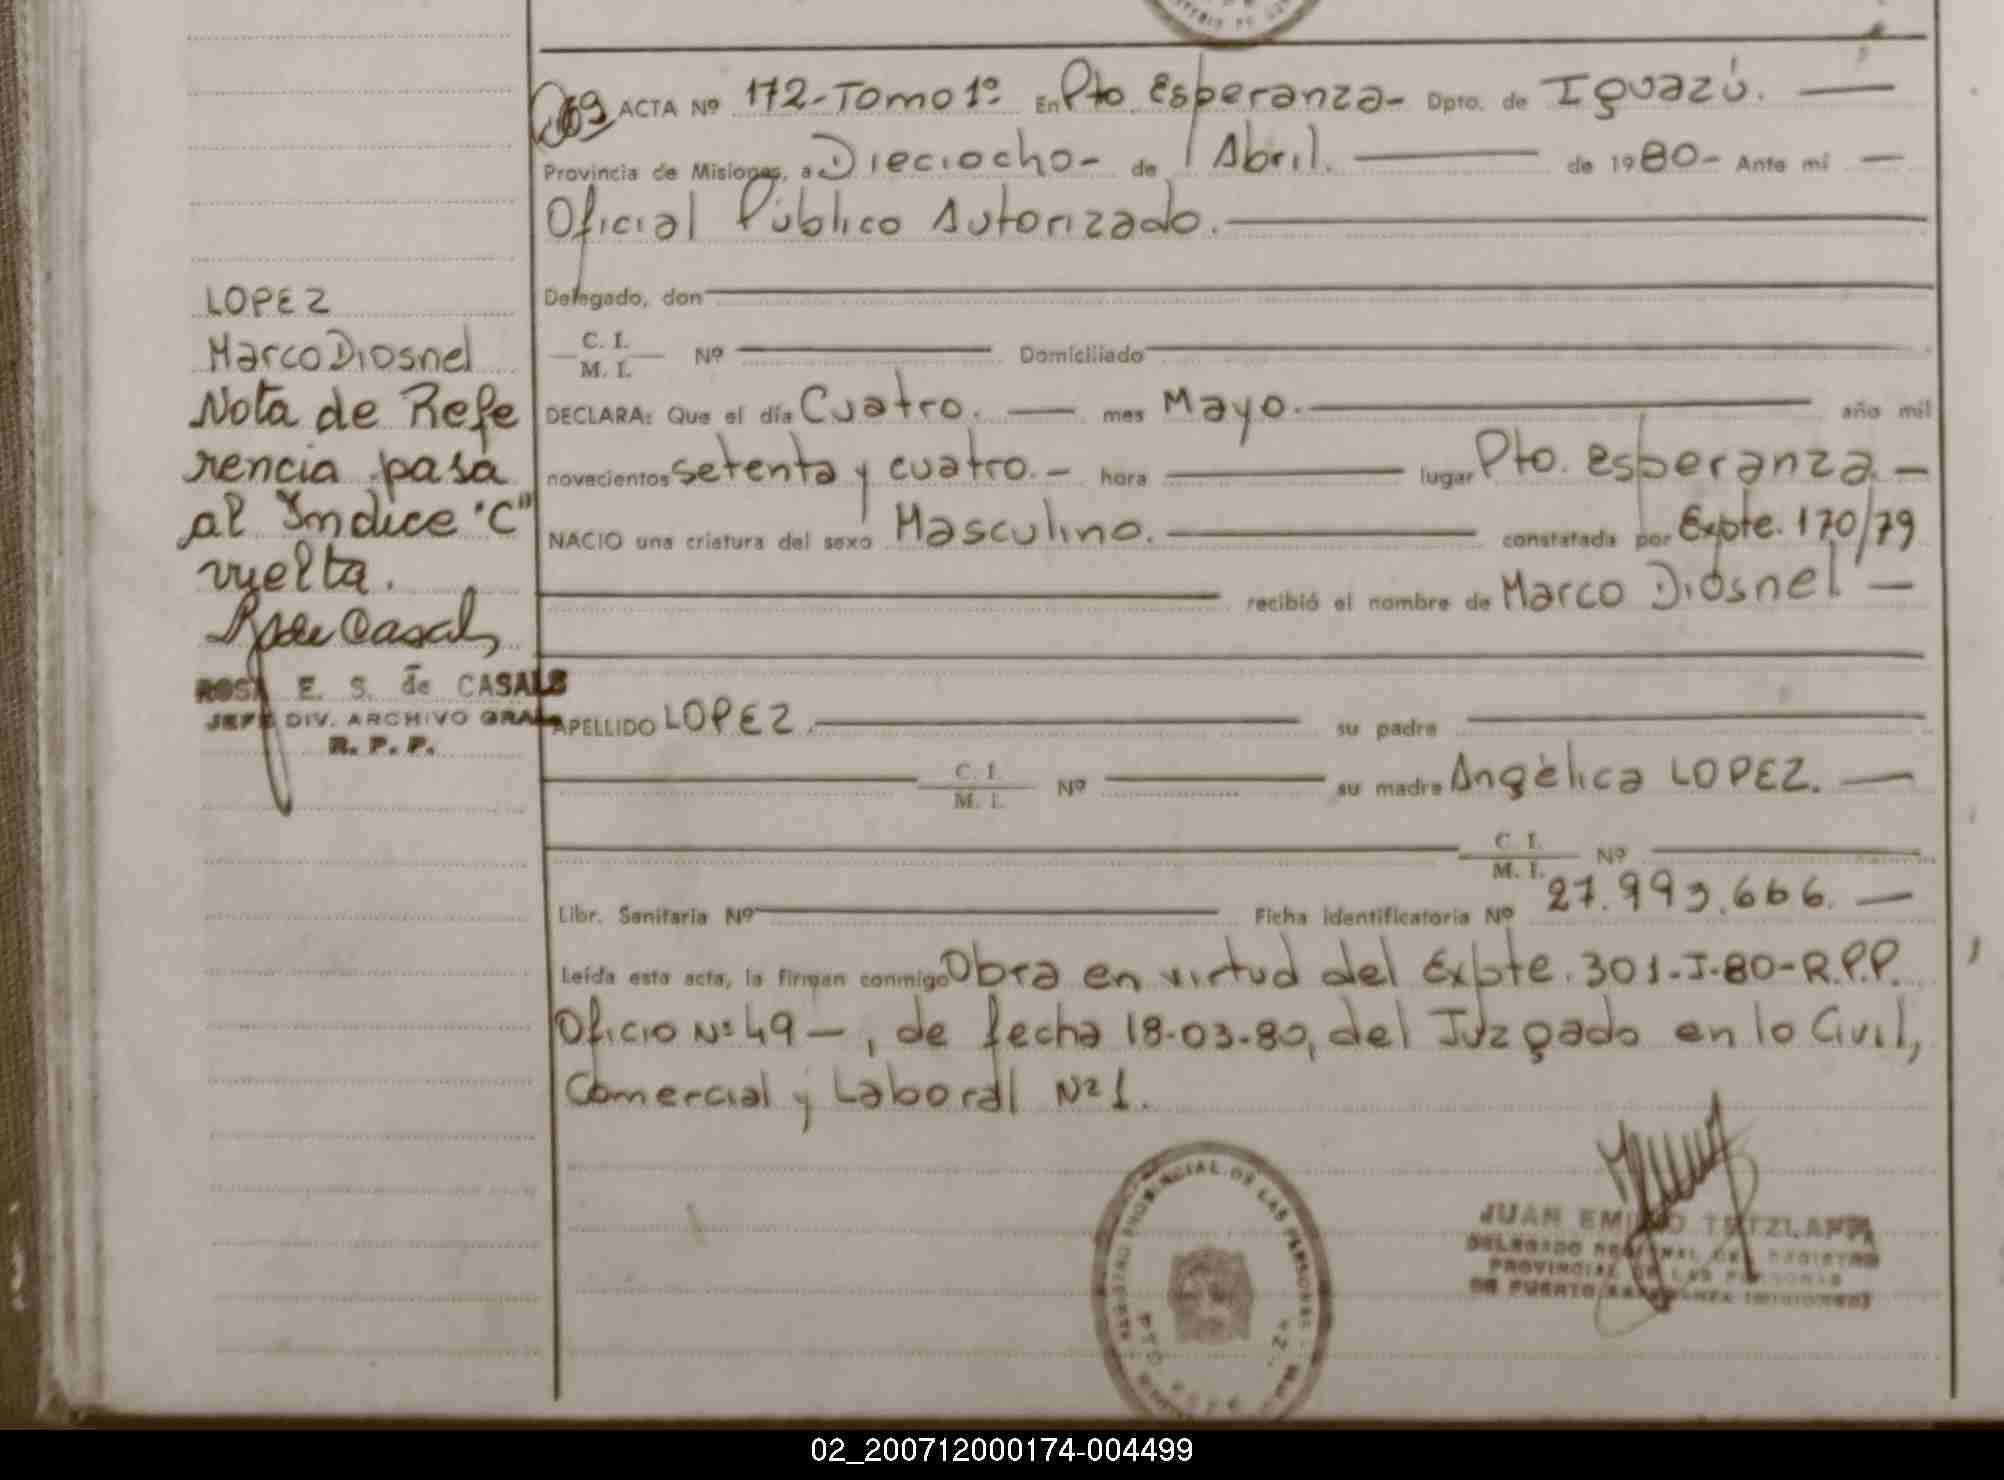 LOPEZ
Marco Diosnel
Nota de Refe
rencia pasa
al Indice "C"
vuelta.
ROSA E. S. de CASALS
JEFE DIV. ARCHIVO GRAL
R. P. P.
ACTA Nº 172-Tomo 1º En Pto Esperanza- Dpto. de Iguazú.
Provincia de Misiones, a Dieciocho- de Abril. de 1980- Ante mí
Oficial Público Autorizado.
Delegado, don
C. I.
M. I. Nº Domiciliado
DECLARA: Que el día Cuatro. mes Mayo. año mil
novecientos setenta y cuatro.- hora lugar Pto. Esperanza.-
NACIO una criatura del sexo Masculino. constatada por Expte. 170/79
recibió el nombre de Marco Diosnel -
APELLIDO LOPEZ. su padre
C. I.
M. I. Nº su madre Angélica LOPEZ.
C. I.
M. I. Nº
Libr. Sanitaria Nº Ficha identificatoria Nº 27.993.666.
Leída esta acta, la firman conmigo Obra en virtud del Expte. 301-I-80-R.P.P.
Oficio Nº 49-, de fecha 18-03-80, del Juzgado en lo Civil,
Comercial y Laboral Nº 1.
REGISTRO PROVINCIAL DE LAS PERSONAS
JUAN EMILIO
DELEGADO REGIONAL DEL REGISTRO
PROVINCIAL DE LAS PERSONAS
DE PUERTO ESPERANZA (MISIONES)
02_200712000174-004499